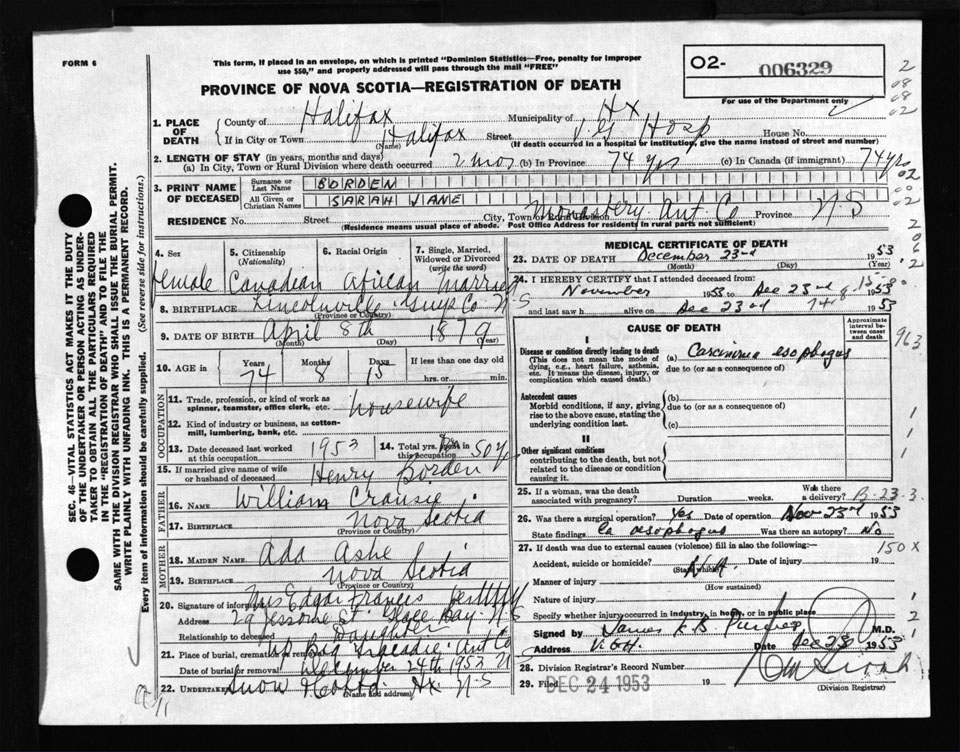 FORM 6
This form, if placed in an envelope, on which is printed "Dominion Statistics—Free, penalty for improper
use $50," and properly addressed will pass through the mail "FREE"
PROVINCE OF NOVA SCOTIA—REGISTRATION OF DEATH
O2- 006329
For use of the Department only
1. PLACE OF DEATH
County of Halifax Municipality of Hx
If in City or Town Halifax Street V.G Hosp House No.
(Name) (If death occurred in a hospital or institution, give the name instead of street and number)
2. LENGTH OF STAY (in years, months and days)
(a) In City, Town or Rural Division where death occurred 2 mos (b) In Province 74 yrs (c) In Canada (if immigrant) 74 yrs
3. PRINT NAME OF DECEASED
Surname or Last Name BORDEN
All Given or Christian Names SARAH JANE
RESIDENCE No. Street City, Town or Rural Division Monastery Ant. Co Province N.S
(Residence means usual place of abode. Post Office Address for residents in rural parts not sufficient)
4. Sex Female
5. Citizenship (Nationality) Canadian
6. Racial Origin African
7. Single, Married, Widowed or Divorced (write the word) Married
8. BIRTHPLACE Lincolnville Guys Co N-S
(Province or Country)
9. DATE OF BIRTH April 8th 1879
(Month) (Day) (Year)
10. AGE in Years 74 Months 8 Days 15 If less than one day old hrs. or min.
OCCUPATION
11. Trade, profession, or kind of work as spinner, teamster, office clerk, etc. housewife
12. Kind of industry or business, as cotton-mill, lumbering, bank, etc.
13. Date deceased last worked at this occupation 1953
14. Total yrs. spent in this occupation 50 y
15. If married give name of wife or husband of deceased Henry Borden
FATHER
16. NAME William
17. BIRTHPLACE Nova Scotia
(Province or Country)
MOTHER
18. MAIDEN NAME Ada Ashe
19. BIRTHPLACE Nova Scotia
(Province or Country)
20. Signature of informant Mrs Edgar Francis
Address 29 Jessome St Glace Bay N S
Relationship to deceased Daughter
21. Place of burial, cremation or removal Tracadie Ant Co
Date of burial or removal December 24th 1953
22. Undertaker Snow Hx N-S
(Name and address)
MEDICAL CERTIFICATE OF DEATH
23. DATE OF DEATH December 23rd 1953
(Month) (Day) (Year)
24. I HEREBY CERTIFY that I attended deceased from:
November 1953 to Dec 23rd 1953
and last saw h alive on Dec 23rd 1953
CAUSE OF DEATH
Approximate interval between onset and death
I
Disease or condition directly leading to death
(This does not mean the mode of dying, e.g., heart failure, asthenia, etc. It means the disease, injury, or complication which caused death.)
(a) Carcinoma esophagus
due to (or as a consequence of)
Antecedent causes
Morbid conditions, if any, giving rise to the above cause, stating the underlying condition last.
(b)
due to (or as a consequence of)
(c)
II
Other significant conditions
contributing to the death, but not related to the disease or condition causing it.
25. If a woman, was the death associated with pregnancy? Duration weeks. Was there a delivery?
B-23-3
26. Was there a surgical operation? Yes Date of operation Nov 23rd 1953
State findings Ca oesophagus Was there an autopsy? No
27. If death was due to external causes (violence) fill in also the following:—
150 X
Accident, suicide or homicide? N.A. Date of injury 19
(State which)
Manner of injury
(How sustained)
Nature of injury
Specify whether injury occurred in industry, in home, or in public place
Signed by James F. B. M.D.
Address V.G.H. Date Dec 23 1953
28. Division Registrar's Record Number
29. Filed DEC 24 1953 19
(Division Registrar)
963
SEC. 46—VITAL STATISTICS ACT MAKES IT THE DUTY
OF THE UNDERTAKER OR PERSON ACTING AS UNDER-
TAKER TO OBTAIN ALL THE PARTICULARS REQUIRED
IN THE "REGISTRATION OF DEATH" AND TO FILE THE
SAME WITH THE DIVISION REGISTRAR WHO SHALL ISSUE THE BURIAL PERMIT.
WRITE PLAINLY WITH UNFADING INK. THIS IS A PERMANENT RECORD.
Every item of information should be carefully supplied. (See reverse side for instructions.)